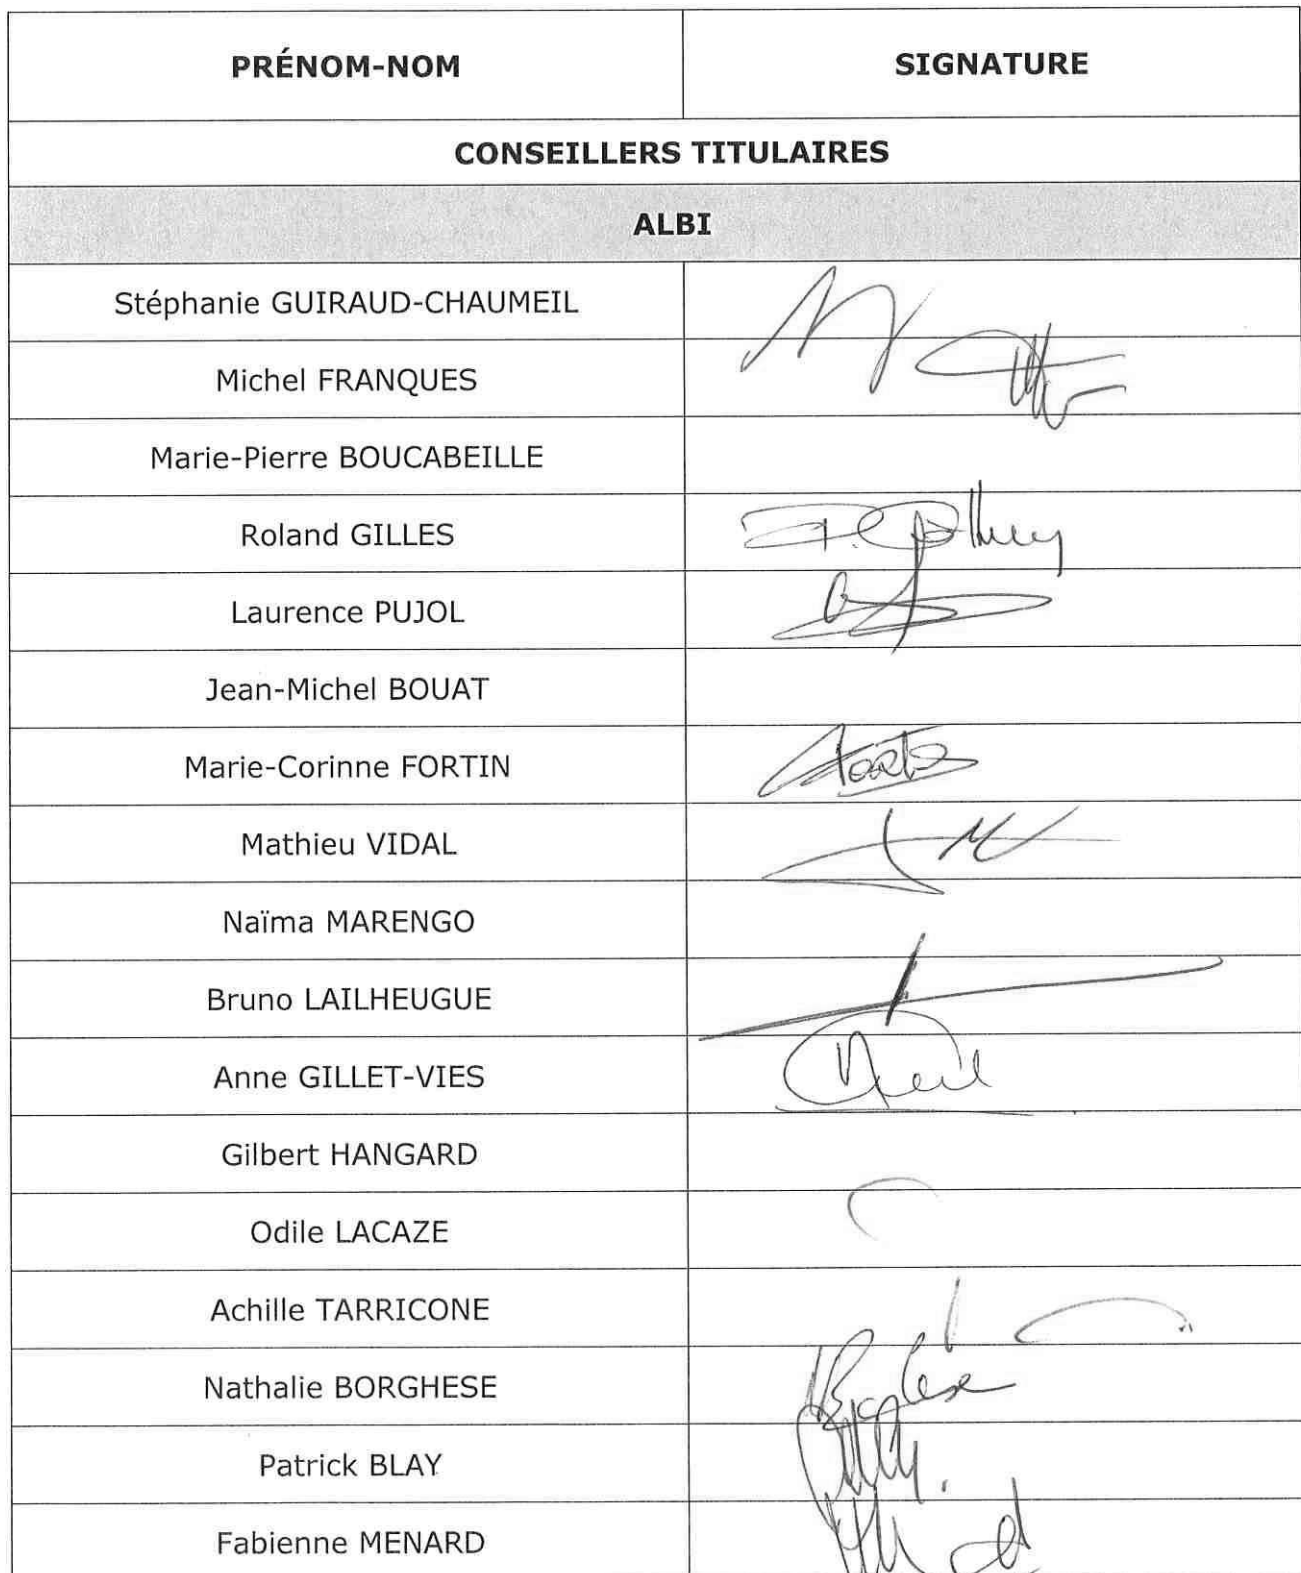 PRÉNOM-NOM SIGNATURE
CONSEILLERS TITULAIRES
ALBI
Stéphanie GUIRAUD-CHAUMEIL
Michel FRANQUES
Marie-Pierre BOUCABEILLE
Roland GILLES
Laurence PUJOL
Jean-Michel BOUAT
Marie-Corinne FORTIN
Mathieu VIDAL
Naïma MARENGO
Bruno LAILHEUGUE
Anne GILLET-VIES
Gilbert HANGARD
Odile LACAZE
Achille TARRICONE
Nathalie BORGHESE
Patrick BLAY
Fabienne MENARD